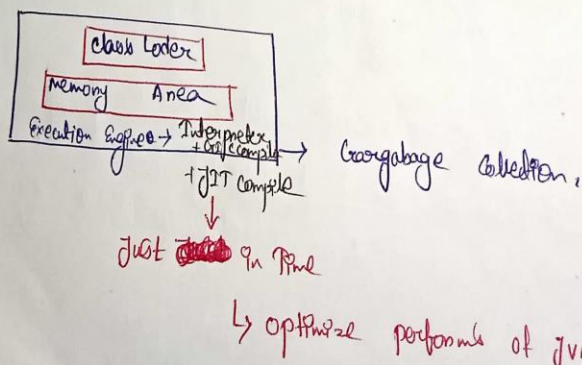 class Loder
Memory Area
Execution Engine → Interpreter
+ G/C compile → Gargabage collection.
+ JIT compile
↓
Just in Time
↳ optimize performs of